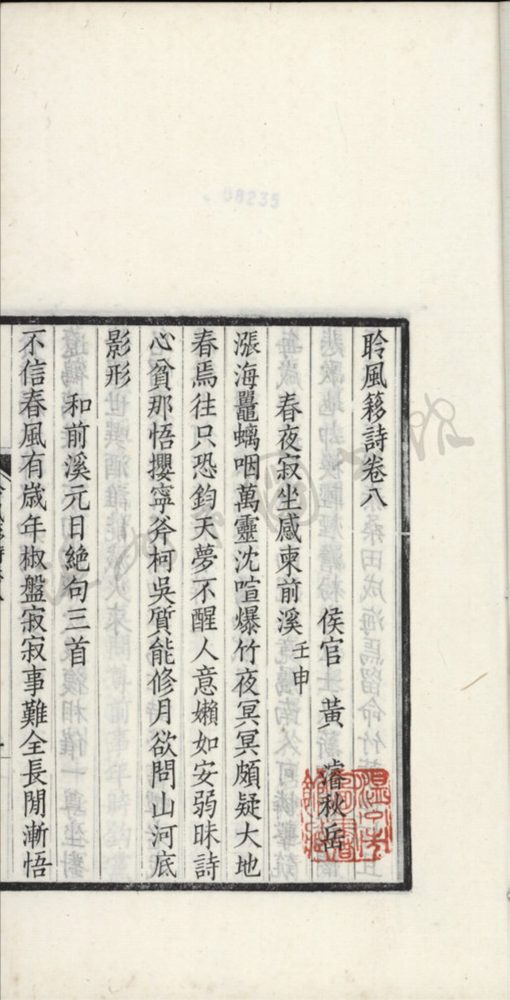 08235
聆風簃詩卷八
侯官 黃濬秋岳
春夜寂坐感柬前溪壬申
漲海鼉蠄咽萬靈沈喧爆竹夜冥冥頗疑大地
春焉往只恐鈞天夢不醒人意嬾如安弱昧詩
心貧那悟攖寧斧柯吳質能修月欲問山河底
影形
和前溪元日絕句三首
不信春風有歲年椒盤寂寂事難全長閒漸悟